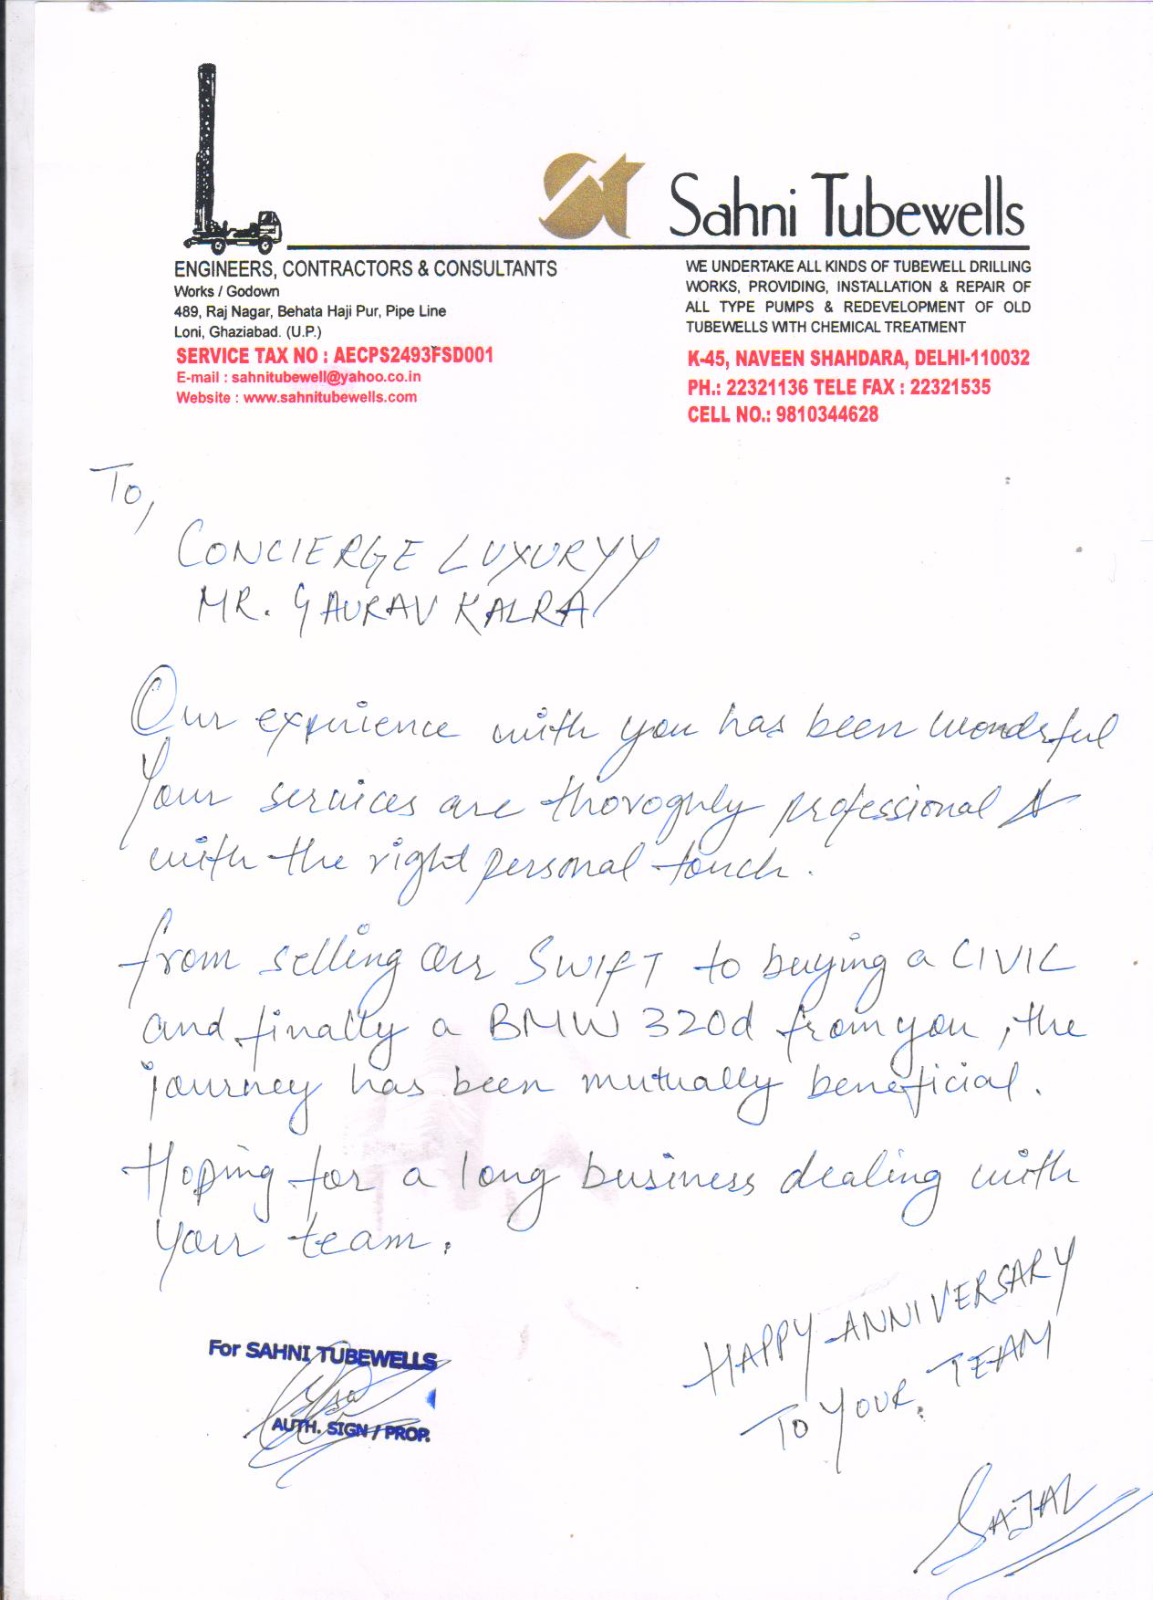 Sahni Tubewells
ENGINEERS, CONTRACTORS & CONSULTANTS
Works / Godown
489, Raj Nagar, Behata Haji Pur, Pipe Line
Loni, Ghaziabad. (U.P.)
SERVICE TAX NO : AECPS2493FSD001
E-mail : sahnitubewell@yahoo.co.in
Website : www.sahnitubewells.com
WE UNDERTAKE ALL KINDS OF TUBEWELL DRILLING
WORKS, PROVIDING, INSTALLATION & REPAIR OF
ALL TYPE PUMPS & REDEVELOPMENT OF OLD
TUBEWELLS WITH CHEMICAL TREATMENT
K-45, NAVEEN SHAHDARA, DELHI-110032
PH.: 22321136 TELE FAX : 22321535
CELL NO.: 9810344628
To,
CONCIERGE LUXURYY
MR. GAURAV KALRA
Our experience with you has been wonderful
Your services are thoroghly professional &
with the right personal touch.
from selling our SWIFT to buying a CIVIC
and finally a BMW 320d from you, the
journey has been mutually beneficial.
Hoping for a long business dealing with
your team.
For SAHNI TUBEWELLS
AUTH. SIGN / PROP.
HAPPY ANNIVERSARY
TO YOUR TEAM
SAJAL